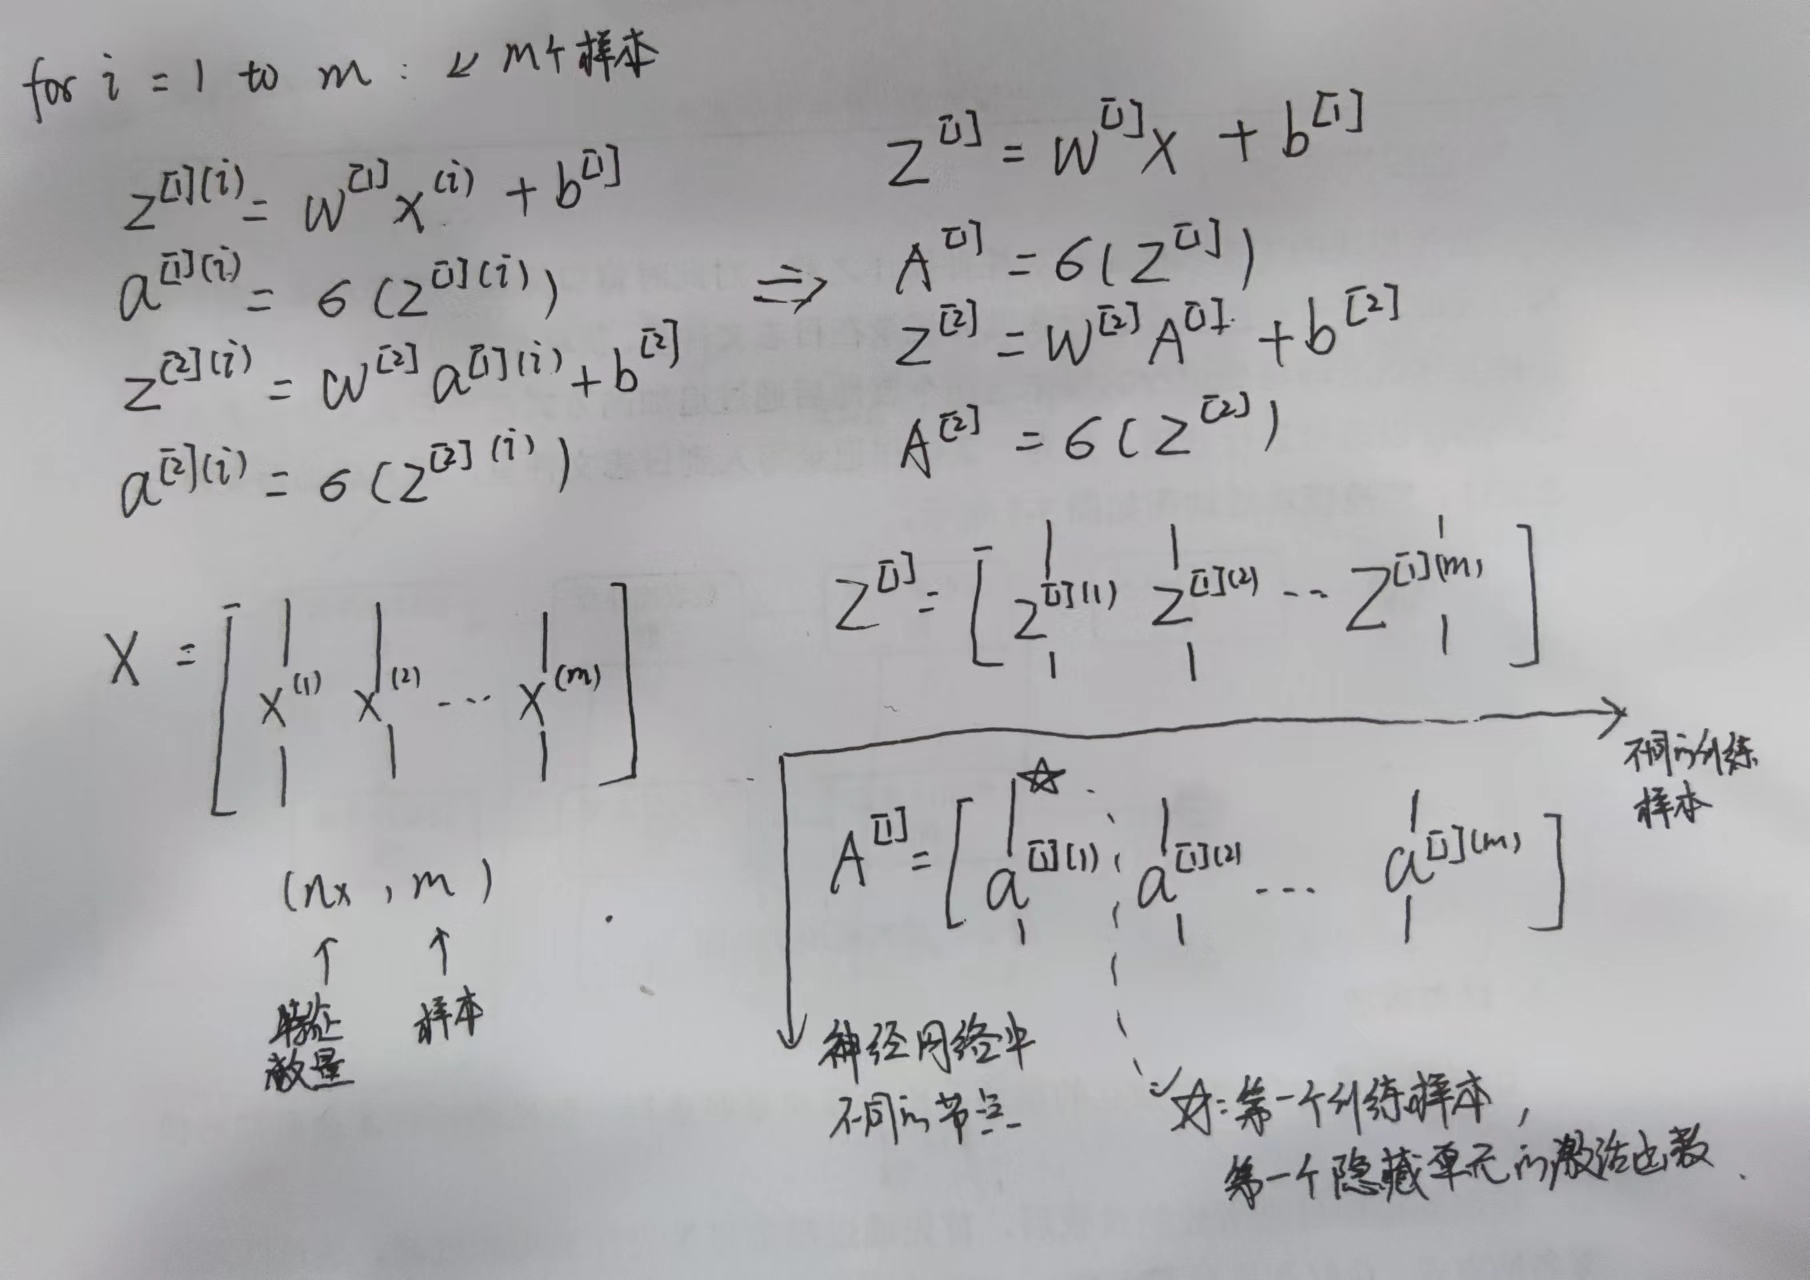 for i = 1 to m : ↙ m个样本
z^{[1](i)} = W^{[1]} x^{(i)} + b^{[1]}
a^{[1](i)} = σ(z^{[1](i)})
z^{[2](i)} = W^{[2]} a^{[1](i)} + b^{[2]}
a^{[2](i)} = σ(z^{[2](i)})
⇒
Z^{[1]} = W^{[1]} X + b^{[1]}
A^{[1]} = σ(Z^{[1]})
Z^{[2]} = W^{[2]} A^{[1]} + b^{[2]}
A^{[2]} = σ(Z^{[2]})
X = [ x^{(1)} x^{(2)} ... x^{(m)} ]
(nx , m)
↑ ↑
特征 样本
数量
Z^{[1]} = [ z^{[1](1)} z^{[1](2)} ... z^{[1](m)} ]
不同的训练
样本
A^{[1]} = [ ☆ a^{[1](1)} a^{[1](2)} ... a^{[1](m)} ]
神经网络中
不同的节点
☆: 第一个训练样本，
第一个隐藏单元的激活函数.